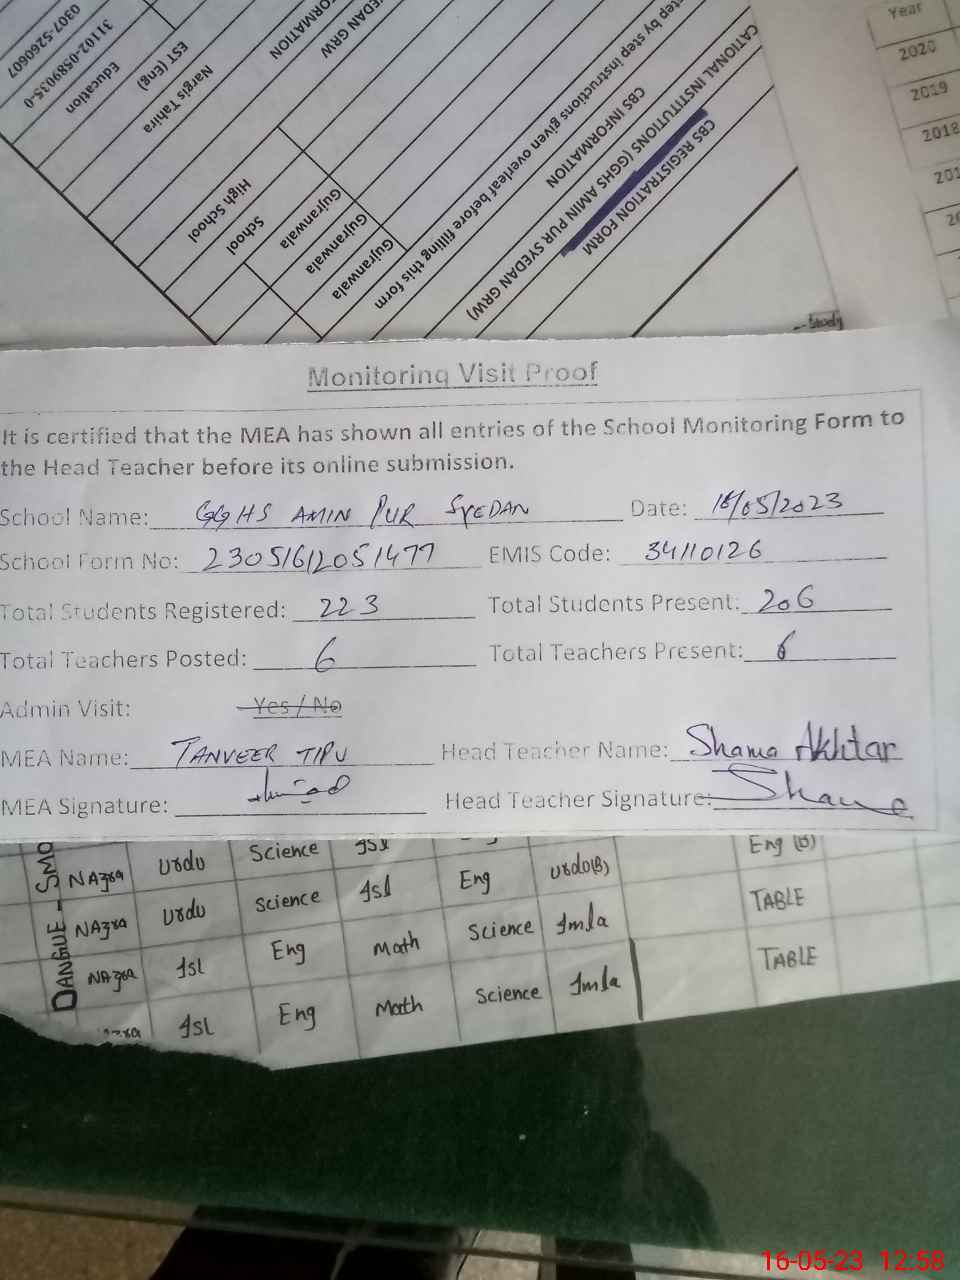 0307-5260607
31102-0589035-0
Education
EST (Eng)
Nargis Tahira
High School
School
Gujranwala
Gujranwala
Gujranwala
CBS INFORMATION
CBS REGISTRATION FORM
Year
2020
2019
2018
Monitoring Visit Proof
It is certified that the MEA has shown all entries of the School Monitoring Form to
the Head Teacher before its online submission.
School Name: GGHS AMIN PUR SYEDAN Date: 16/05/2023
School Form No: 23051612051477 EMIS Code: 34110126
Total Students Registered: 223 Total Students Present: 206
Total Teachers Posted: 6 Total Teachers Present: 6
Admin Visit: Yes / No
MEA Name: TANVEER TIPU Head Teacher Name: Shama Akhtar
MEA Signature: Head Teacher Signature: Shama
NAzra Urdu Science Isl Eng (B)
NAzra Urdu Science Isl Eng Urdu(B) TABLE
NAzra Isl Eng Math Science Imla TABLE
Isl Eng Math Science Imla
16-05-23 12:58